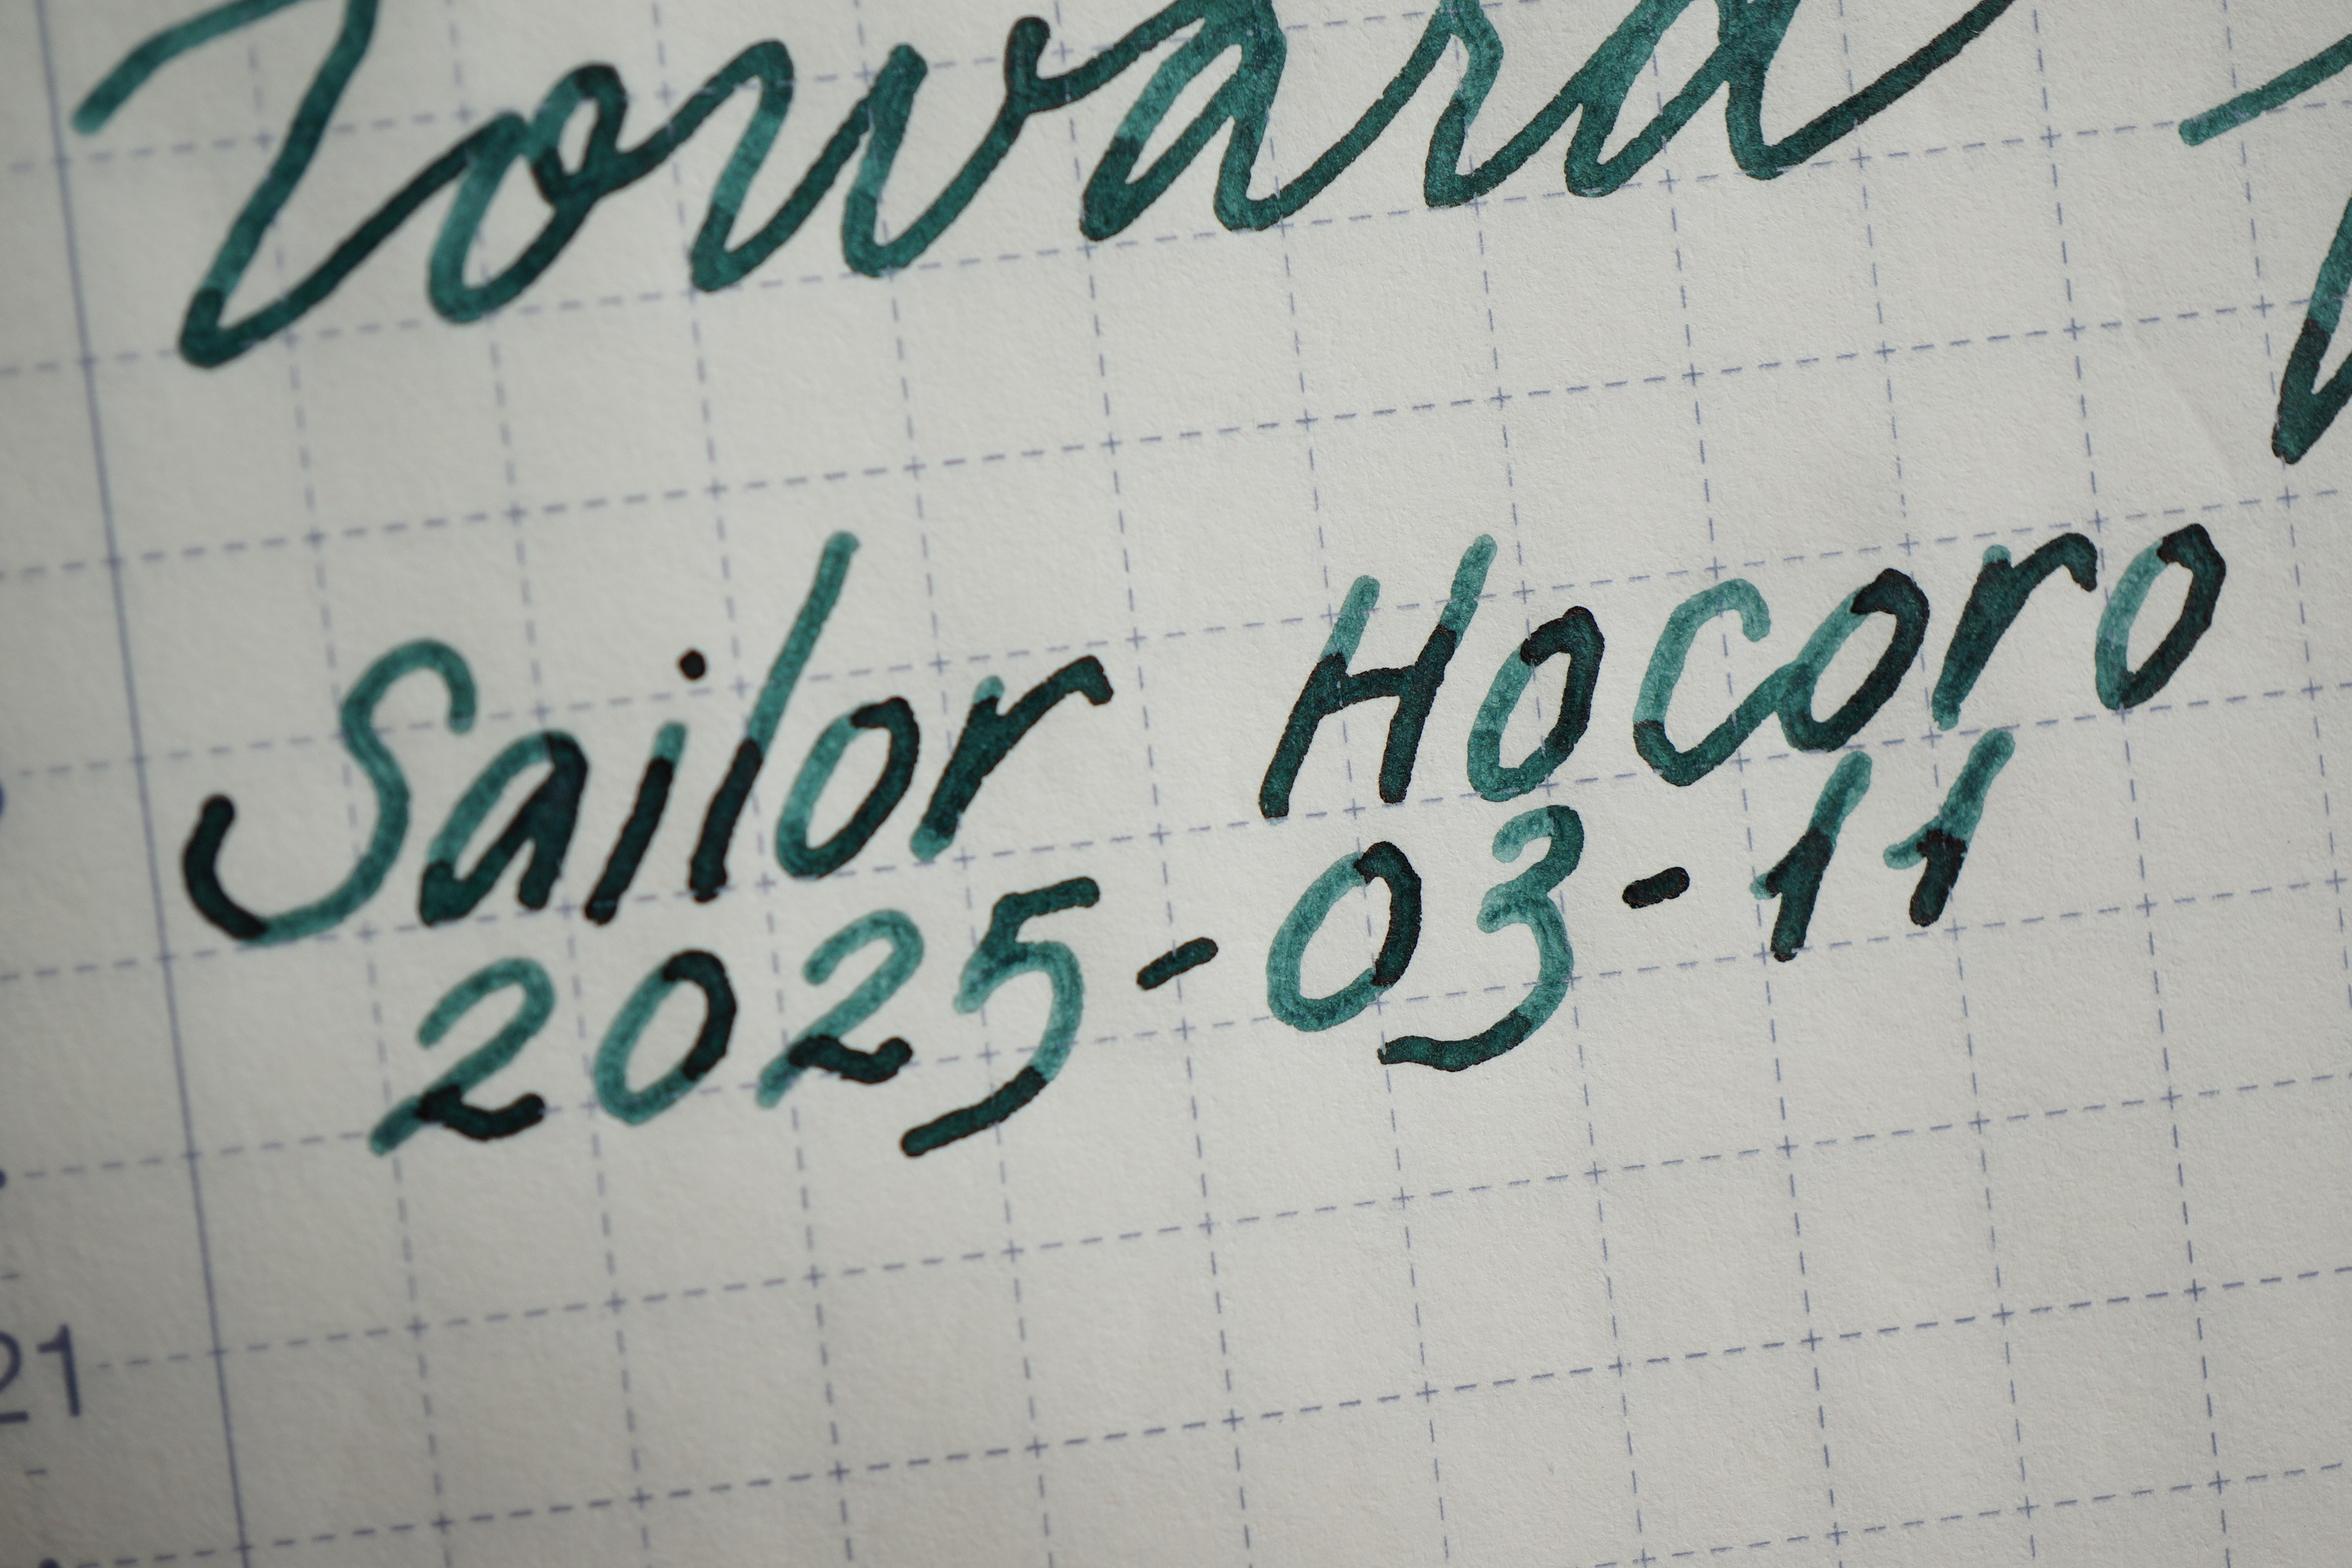 Toward
Sailor Hocoro
2025-03-11
21